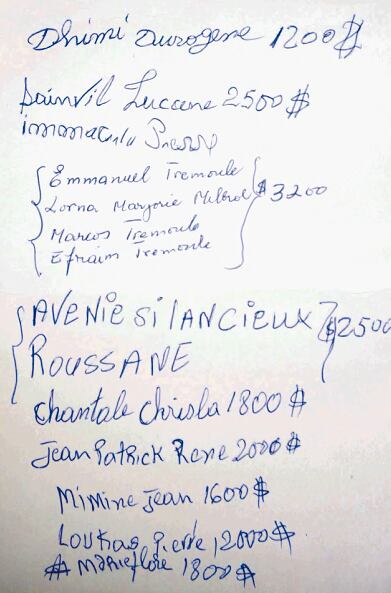 Dhimi Durogene 1200$
Sainvil Luccene 2500$
immacula
Emmanuel Tremoule
Lorna Marjorie $3200
Marcos Tremoule
Efraim Tremoule
AVENIE SILANCIEUX $2500
ROUSSANE
Chantale Chrisla 1800$
Jean Patrick Rene 2000$
Mimine Jean 1600$
Loukas Pierre 12000$
Marieflore 1800$